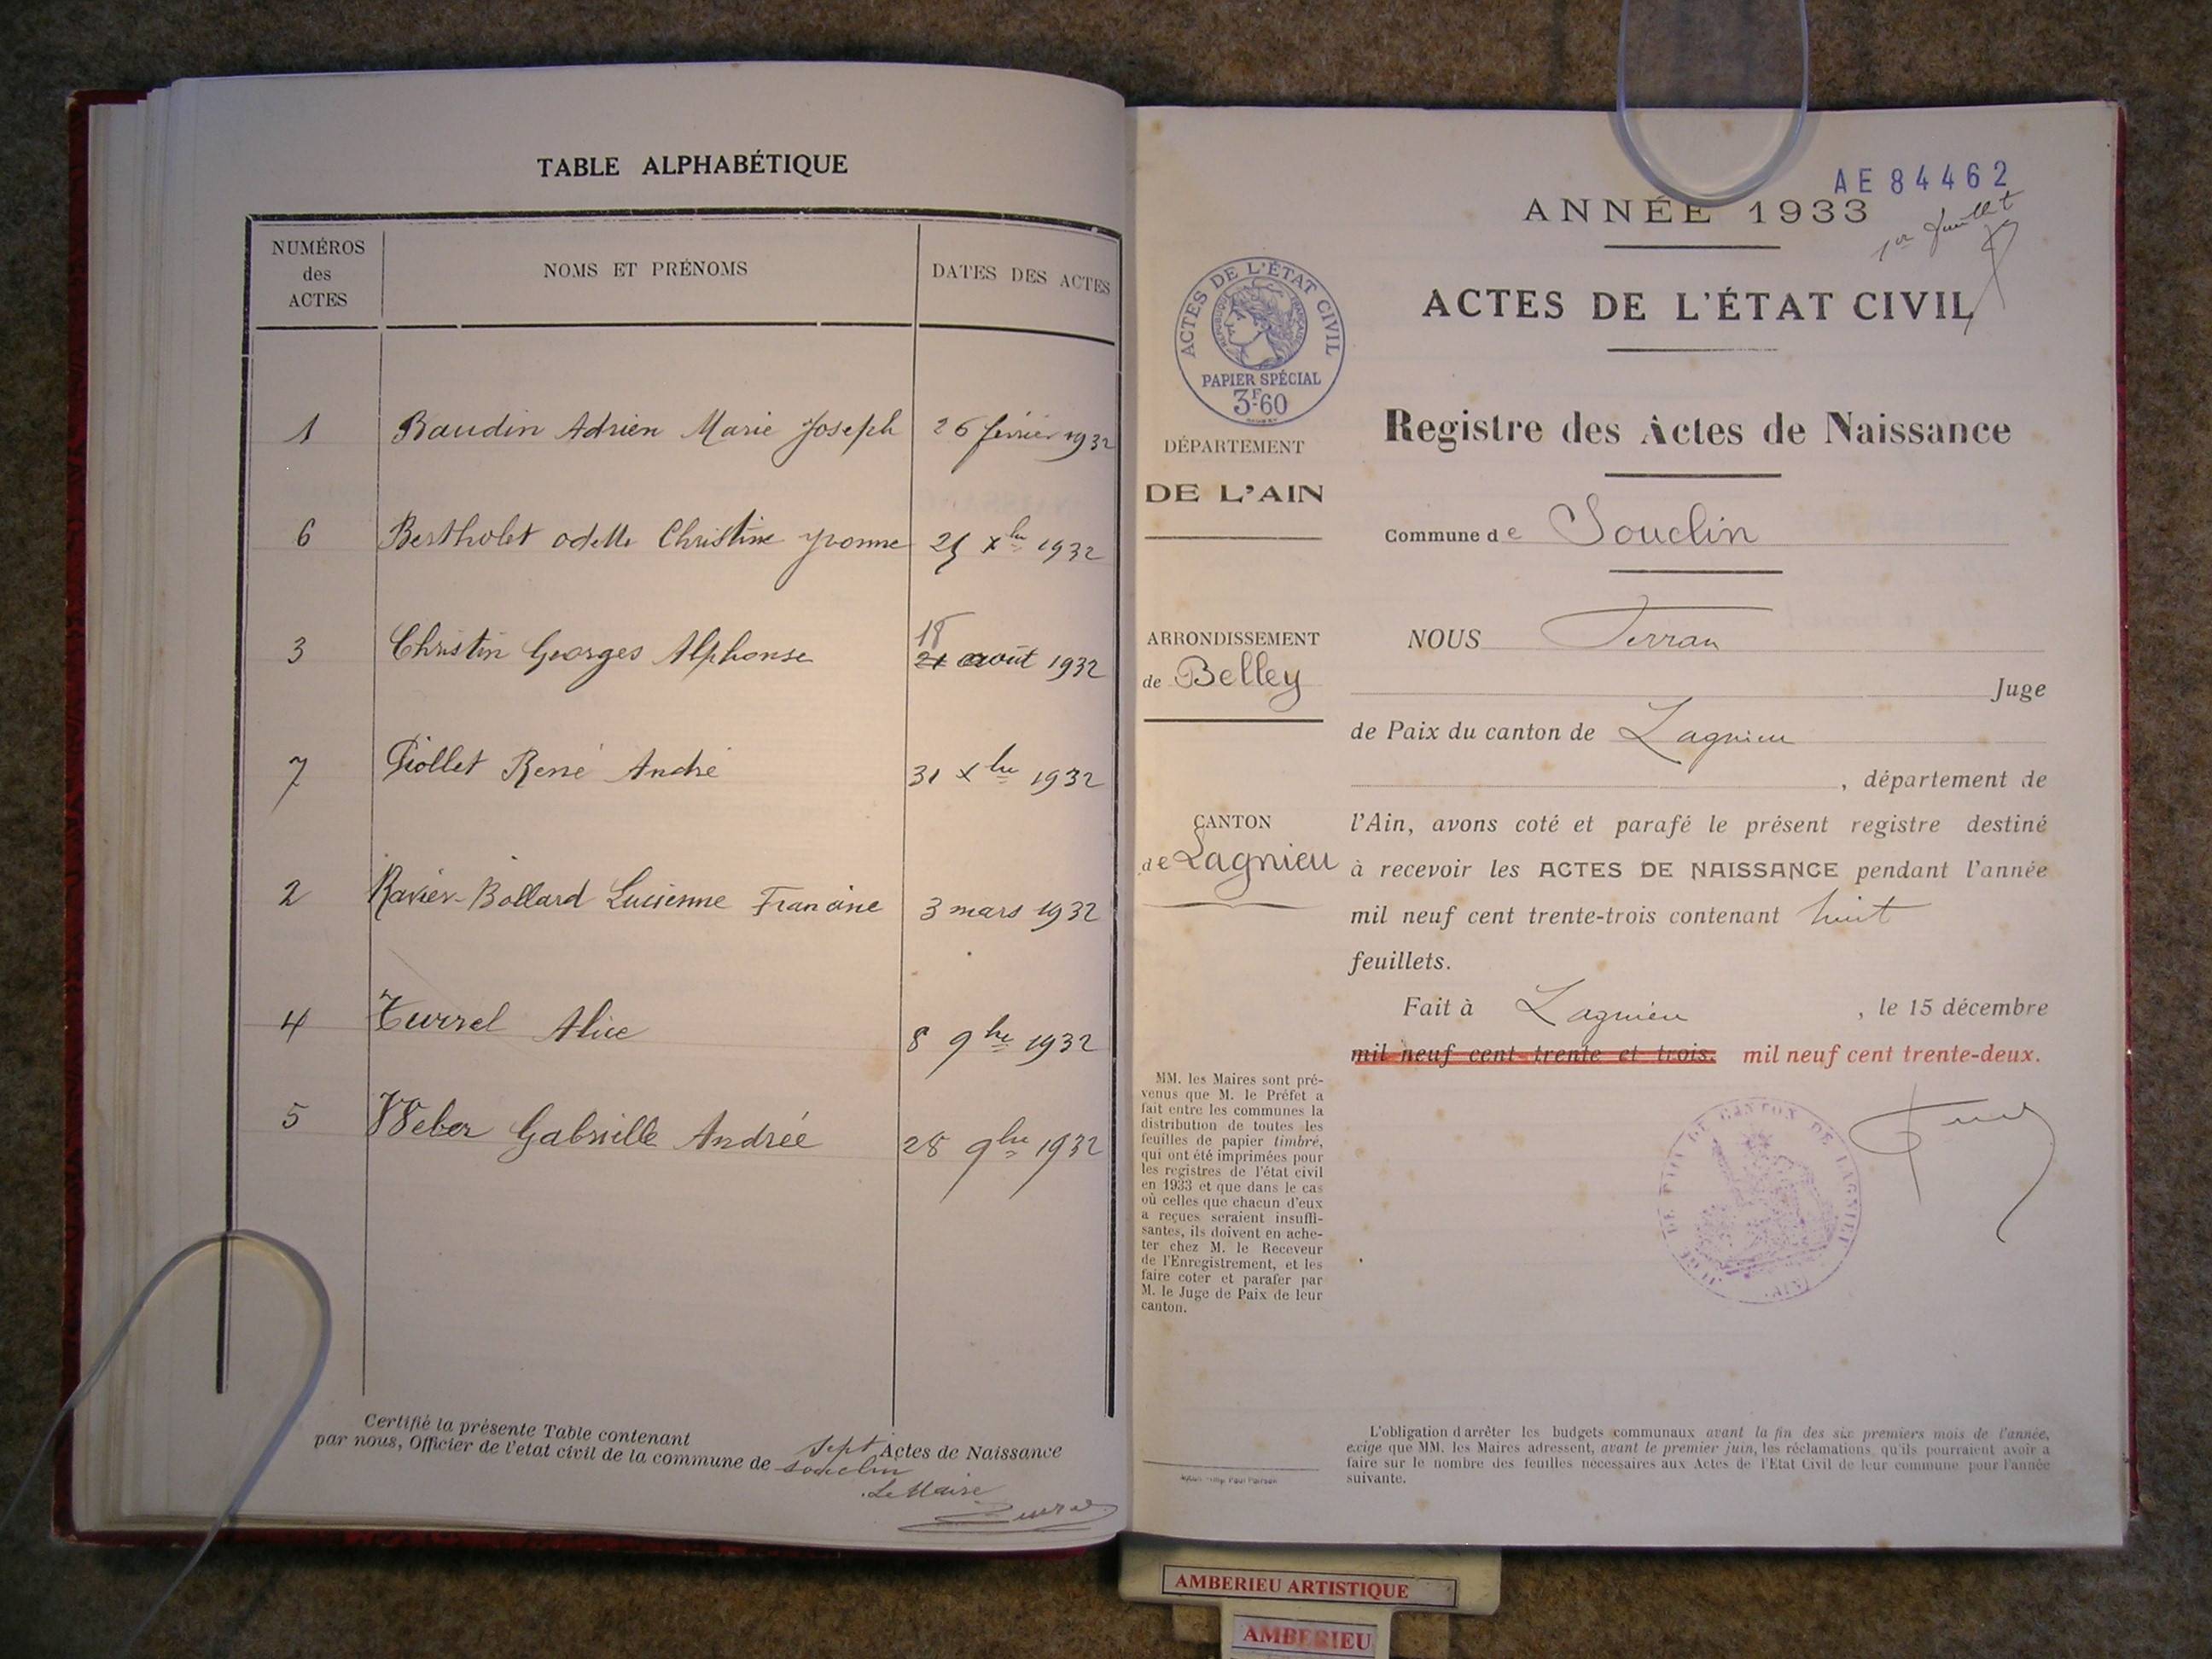 TABLE ALPHABÉTIQUE
NUMÉROS
des
ACTES
NOMS ET PRÉNOMS
DATES DES ACTES
1 Baudin Adrien Marie Joseph 26 février 1932
6 Bertholet odette Christine Yvonne 25 Xbre 1932
3 Christin Georges Alphonse 18 21 août 1932
7 Piollet René André 31 Xbre 1932
2 Ravier-Bollard Lucienne Francine 3 mars 1932
4 Turrel Alice 8 9bre 1932
5 Weber Gabrielle Andrée 28 9bre 1932
Certifié la présente Table contenant sept Actes de Naissance
par nous, Officier de l'etat civil de la commune de souclin
Le Maire
AE 84462
ANNÉE 1933
1er Juillet
ACTES DE L'ÉTAT CIVIL
ACTES DE L'ÉTAT CIVIL
RÉPUBLIQUE FRANÇAISE
PAPIER SPÉCIAL
3F60
Registre des Actes de Naissance
DÉPARTEMENT
DE L'AIN
Commune de Souclin
ARRONDISSEMENT
de Belley
CANTON
de Lagnieu
NOUS Ferran
Juge
de Paix du canton de Lagnieu
, département de
l'Ain, avons coté et parafé le présent registre destiné
à recevoir les ACTES DE NAISSANCE pendant l'année
mil neuf cent trente-trois contenant huit
feuillets.
Fait à Lagnieu , le 15 décembre
mil neuf cent trente et trois. mil neuf cent trente-deux.
MM. les Maires sont pré-
venus que M. le Préfet a
fait entre les communes la
distribution de toutes les
feuilles de papier timbré,
qui ont été imprimées pour
les registres de l'état civil
en 1933 et que dans le cas
où celles que chacun d'eux
a reçues seraient insuffi-
santes, ils doivent en ache-
ter chez M. le Receveur
de l'Enregistrement, et les
faire coter et parafer par
M. le Juge de Paix de leur
canton.
CANTON DE LAGNIEU
(AIN)
L'obligation d'arrêter les budgets communaux avant la fin des six premiers mois de l'année,
exige que MM. les Maires adressent, avant le premier juin, les réclamations qu'ils pourraient avoir à
faire sur le nombre des feuilles nécessaires aux Actes de l'Etat Civil de leur commune pour l'année
suivante.
AMBERIEU ARTISTIQUE
AMBERIEU